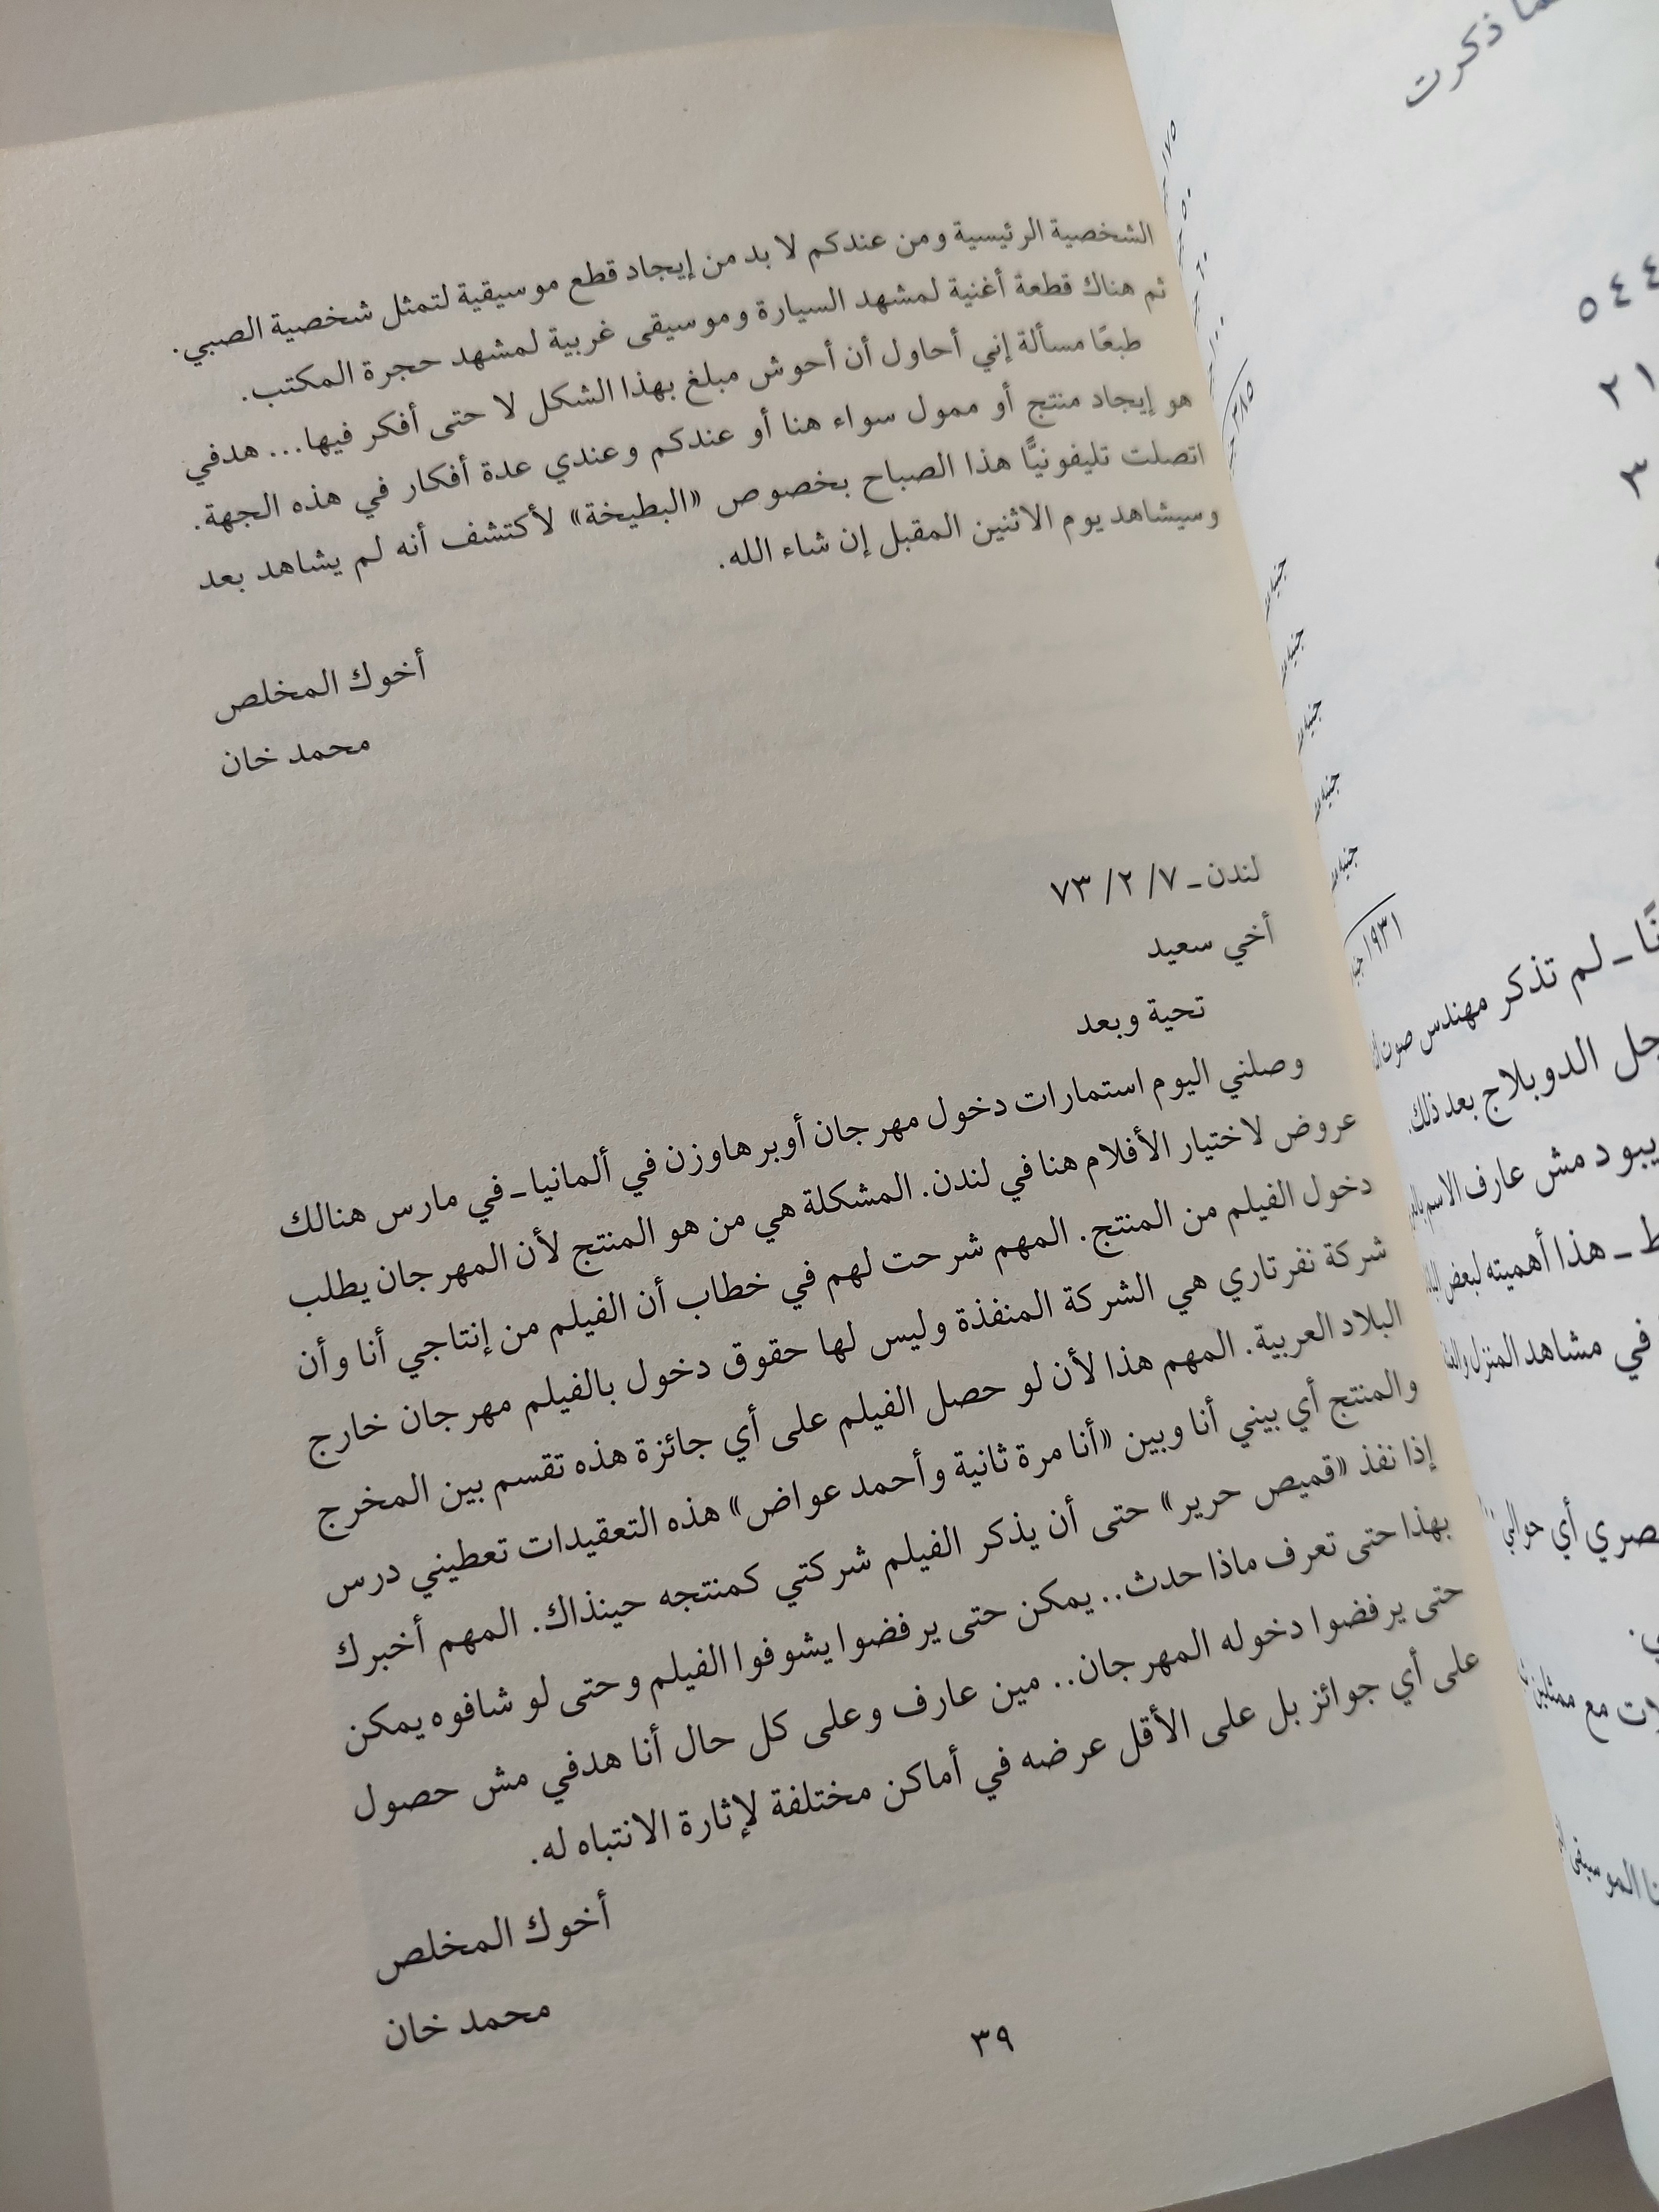 الشخصية الرئيسية ومن عندكم لا بد من إيجاد قطع موسيقية لتمثل شخصية الصبي.
ثم هناك قطعة أغنية لمشهد السيارة وموسيقى غربية لمشهد حجرة المكتب.
طبعًا مسألة إني أحاول أن أحوش مبلغ بهذا الشكل لا حتى أفكر فيها... هدفي
هو إيجاد منتج أو ممول سواء هنا أو عندكم وعندي عدة أفكار في هذه الجهة.
اتصلت تليفونيًّا هذا الصباح بخصوص «البطيخة» لأكتشف أنه لم يشاهد بعد
وسيشاهد يوم الاثنين المقبل إن شاء الله.
أخوك المخلص
محمد خان
لندن ـ ٧/ ٢/ ٧٣
أخي سعيد
تحية وبعد
وصلني اليوم استمارات دخول مهرجان أوبرهاوزن في ألمانيا ـ في مارس هنالك
عروض لاختيار الأفلام هنا في لندن. المشكلة هي من هو المنتج لأن المهرجان يطلب
دخول الفيلم من المنتج. المهم شرحت لهم في خطاب أن الفيلم من إنتاجي أنا وأن
شركة نفرتاري هي الشركة المنفذة وليس لها حقوق دخول بالفيلم مهرجان خارج
البلاد العربية. المهم هذا لأن لو حصل الفيلم على أي جائزة هذه تقسم بين المخرج
والمنتج أي بيني أنا وبين «أنا مرة ثانية وأحمد عواض» هذه التعقيدات تعطيني درس
إذا نفذ «قميص حرير» حتى أن يذكر الفيلم شركتي كمنتجه حينذاك. المهم أخبرك
بهذا حتى تعرف ماذا حدث.. يمكن حتى يرفضوا يشوفوا الفيلم وحتى لو شافوه يمكن
حتى يرفضوا دخوله المهرجان.. مين عارف وعلى كل حال أنا هدفي مش حصول
على أي جوائز بل على الأقل عرضه في أماكن مختلفة لإثارة الانتباه له.
أخوك المخلص
محمد خان
٣٩
ذكرت
٥٤٤
٢١
٣
٣٨٥
جنيه
جنيه
جنيه
جنيه
جنيه
١٩٣١
ـ لم تذكر مهندس صوت
الدوبلاج بعد ذلك
مش عارف الاسم
ـ هذا أهميته لبعض
في مشاهد المنزل
أي حوالي
مع ممثلين